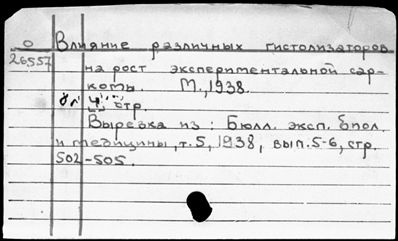 О Влияние различных гистолизаторов
26557 на рост экспериментальной сар-
комы. М., 1938.
4 стр.
Вырезка из: Бюлл. эксп. биол.
и медицины, т. 5, 1938, вып. 5-6, стр.
502-505.